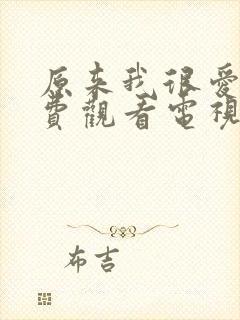 原来我很爱
費觀看電視
布吉